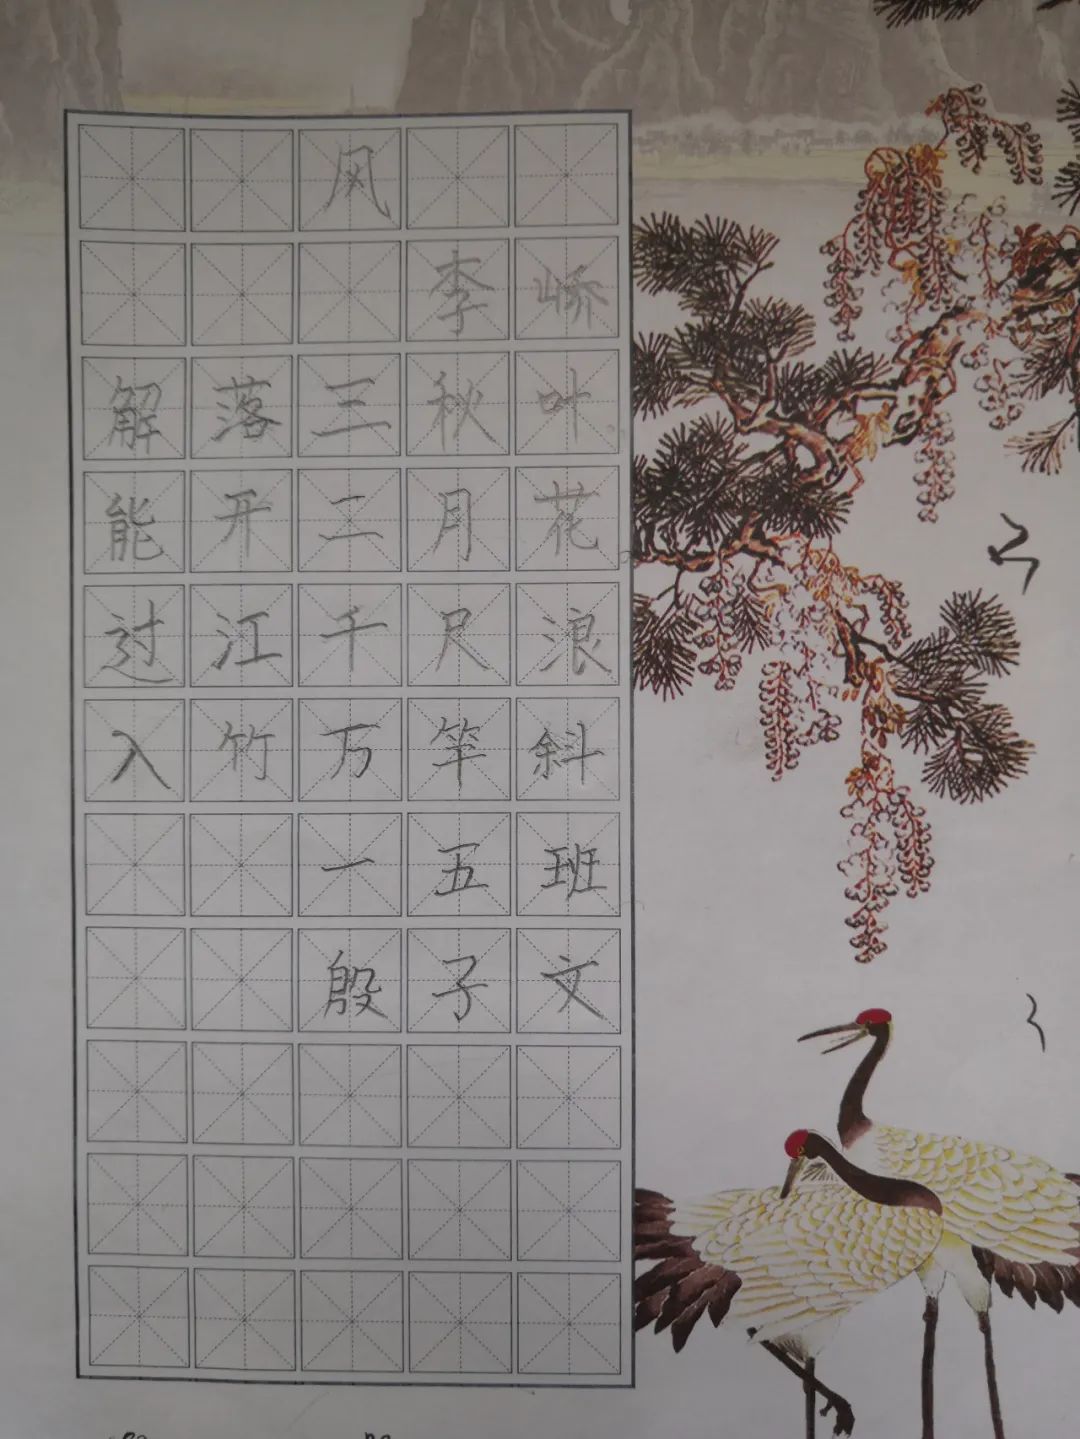 风
李峤
解落三秋叶
能开二月花
过江千尺浪
入竹万竿斜
一五班
殷子文